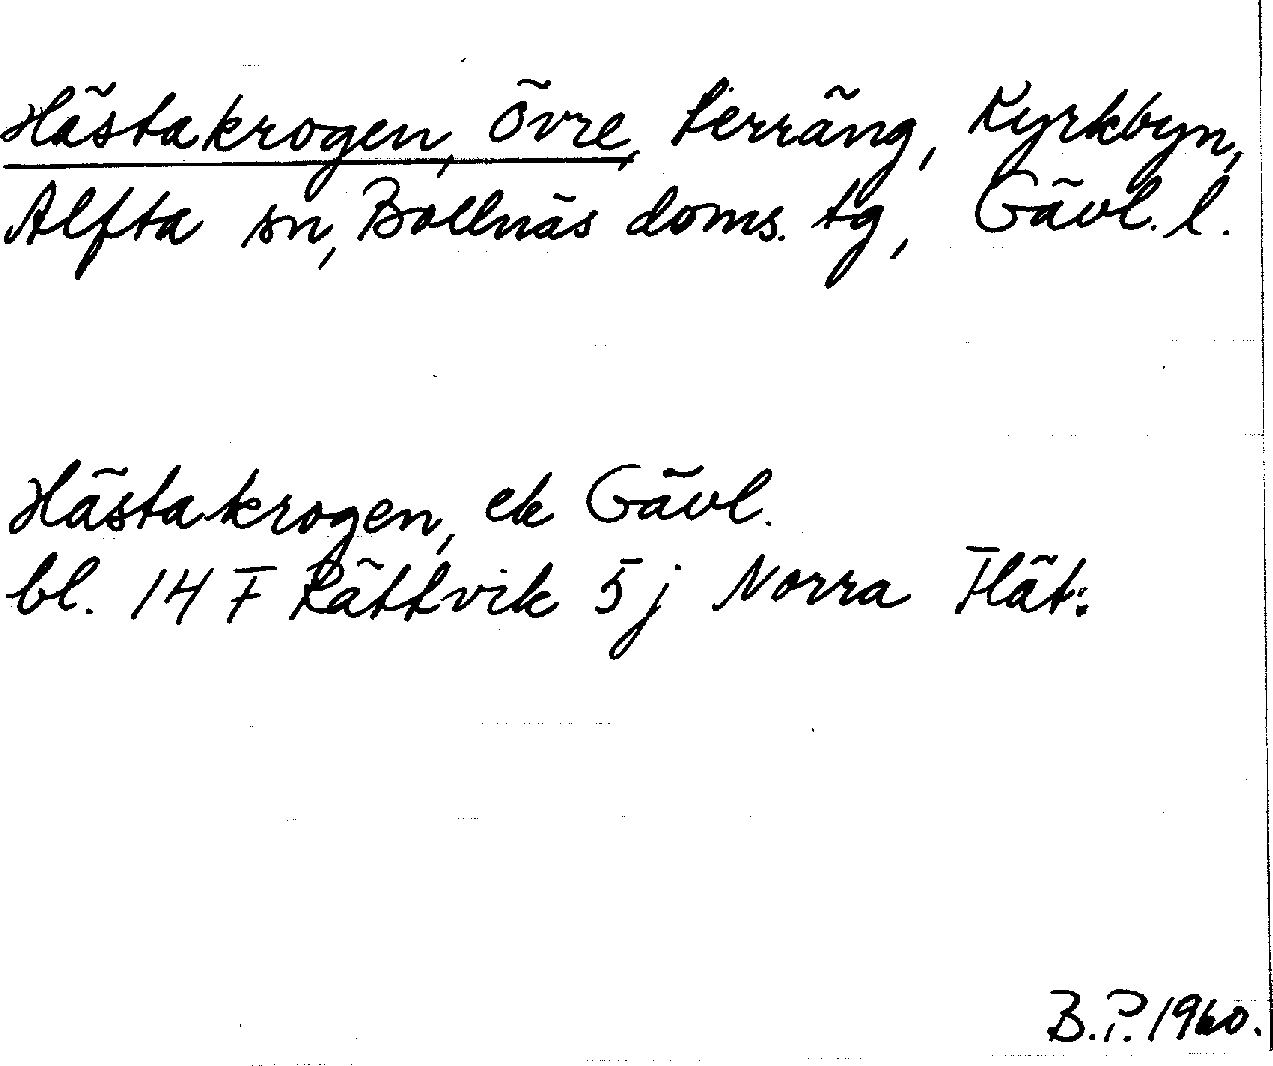 Hästakrogen, Övre, terräng, Kyrkbyn,
Alfta sn, Bollnäs doms. tg, Gävl. l.
Hästakrogen, ek Gävl.
bl. 14 F Rättvik 5 j Norra Flät:
B.P. 1960.